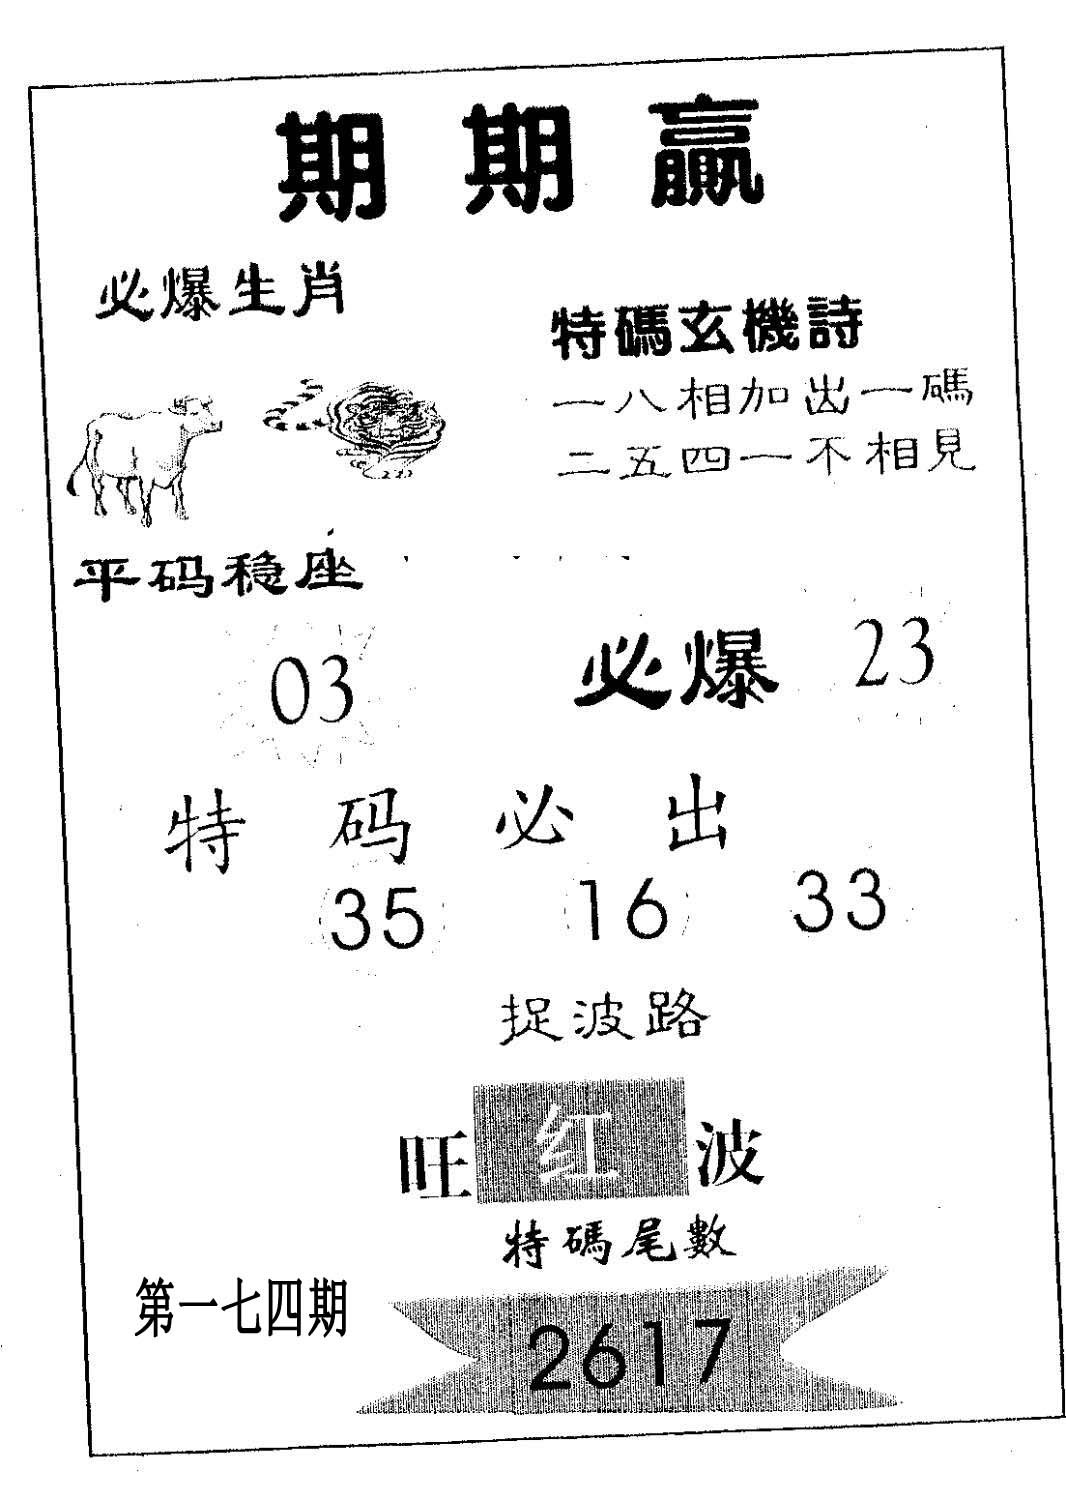 期期贏
必爆生肖
特碼玄機詩
一八相加出一碼
二五四一不相見
平码稳座
03
必爆 23
特码必出
35 16 33
捉波路
旺红波
特碼尾數
第一七四期
2617